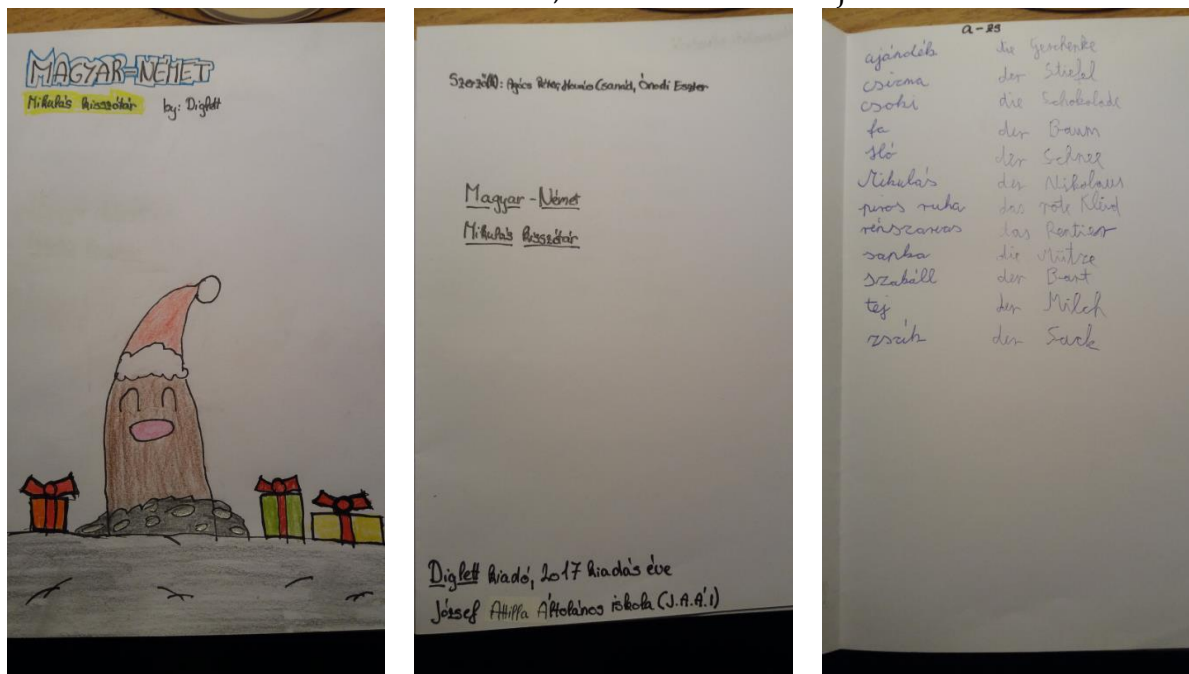 MAGYAR-NÉMET
Mikulás kisszótár by: Diglett
Szerzők: Péter, Csanád, Ónodi Eszter
Magyar - Német
Mikulás kisszótár
Diglett kiadó, 2017 kiadás éve
József Attila Általános iskola (J.A.Á.I)
a-zs
ajándék die Geschenke
csizma der Stiefel
csoki die Schokolade
fa der Baum
Hó der Schnee
Mikulás der Nikolaus
piros ruha das rote Kleid
rénszarvas das Rentier
sapka die Mütze
szakáll der Bart
tej der Milch
zsák der Sack